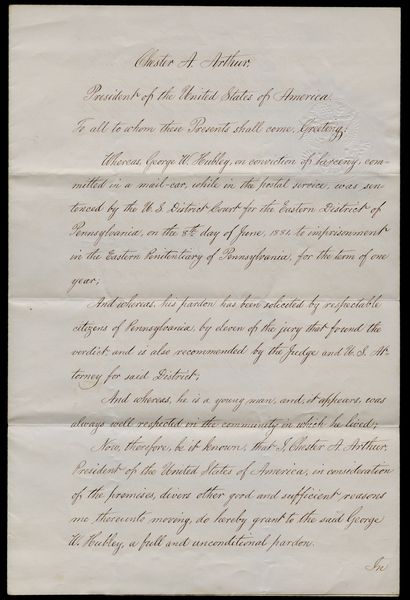 Chester A. Arthur,
President of the United States of America.
To all to whom these Presents shall come, Greeting:
Whereas, George W. Hubley, on conviction of larceny, com-
mitted in a mail-car, while in the postal service, was sen-
tenced by the U. S. District Court for the Eastern District of
Pennsylvania, on the 8th day of June, 1881, to imprisonment
in the Eastern Penitentiary of Pennsylvania, for the term of one
year;
And whereas, his pardon has been solicited by respectable
citizens of Pennsylvania, by eleven of the jury that found the
verdict, and is also recommended by the Judge and U. S. At-
torney for said District;
And whereas, he is a young man, and, it appears, was
always well respected in the community in which he lived;
Now, therefore, be it known, that I, Chester A. Arthur,
President of the United States of America, in consideration
of the premises, divers other good and sufficient reasons
me thereunto moving, do hereby grant to the said George
W. Hubley, a full and unconditional pardon.
In